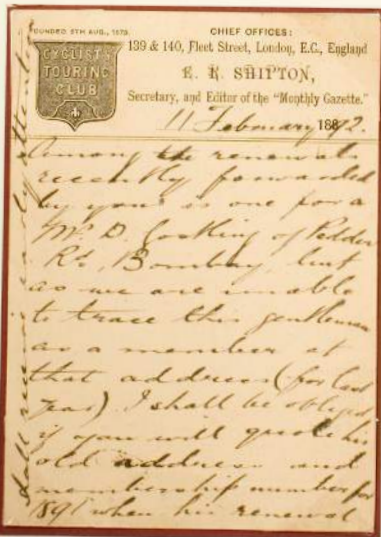 FOUNDED 5TH AUG., 1878.
CYCLISTS
TOURING
CLUB
CHIEF OFFICES:
139 & 140, Fleet Street, London, E.C., England
E. R. SHIPTON,
Secretary, and Editor of the "Monthly Gazette."
11 February 1892.
Among the renewals
recently forwarded
by you is one for a
Mr D. Gostling of Pedder
Rd, Bombay, but
as we are unable
to trace this gentleman
as a member at
that address (for last
year) I shall be obliged
if you will quote his
old address and
membership number for
1891 when his renewal
shall receive early attention